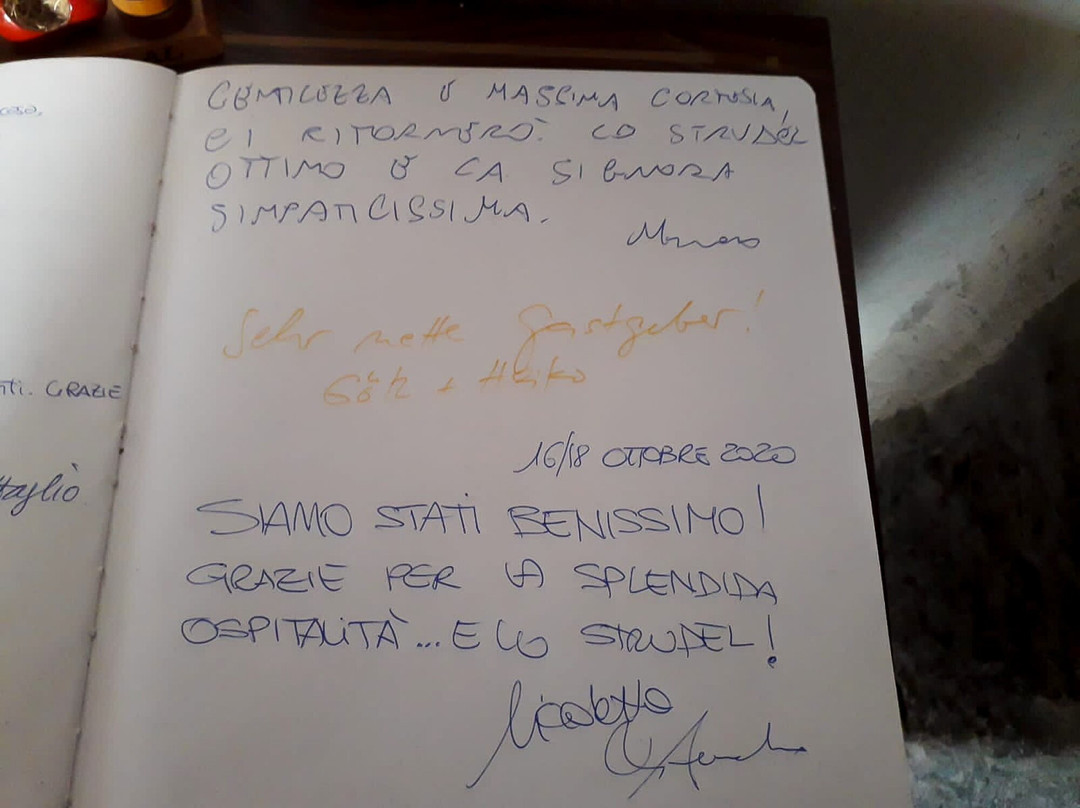 GENTILEZZA E MASSIMA CORTESIA,
CI RITORNERÒ. LO STRUDEL
OTTIMO E LA SIGNORA
SIMPATICISSIMA.
Sehr nette Gastgeber!
Götz + Heiko
16/18 OTTOBRE 2020
SIAMO STATI BENISSIMO!
GRAZIE PER LA SPLENDIDA
OSPITALITÀ... E LO STRUDEL!
Nicoletta
GRAZIE